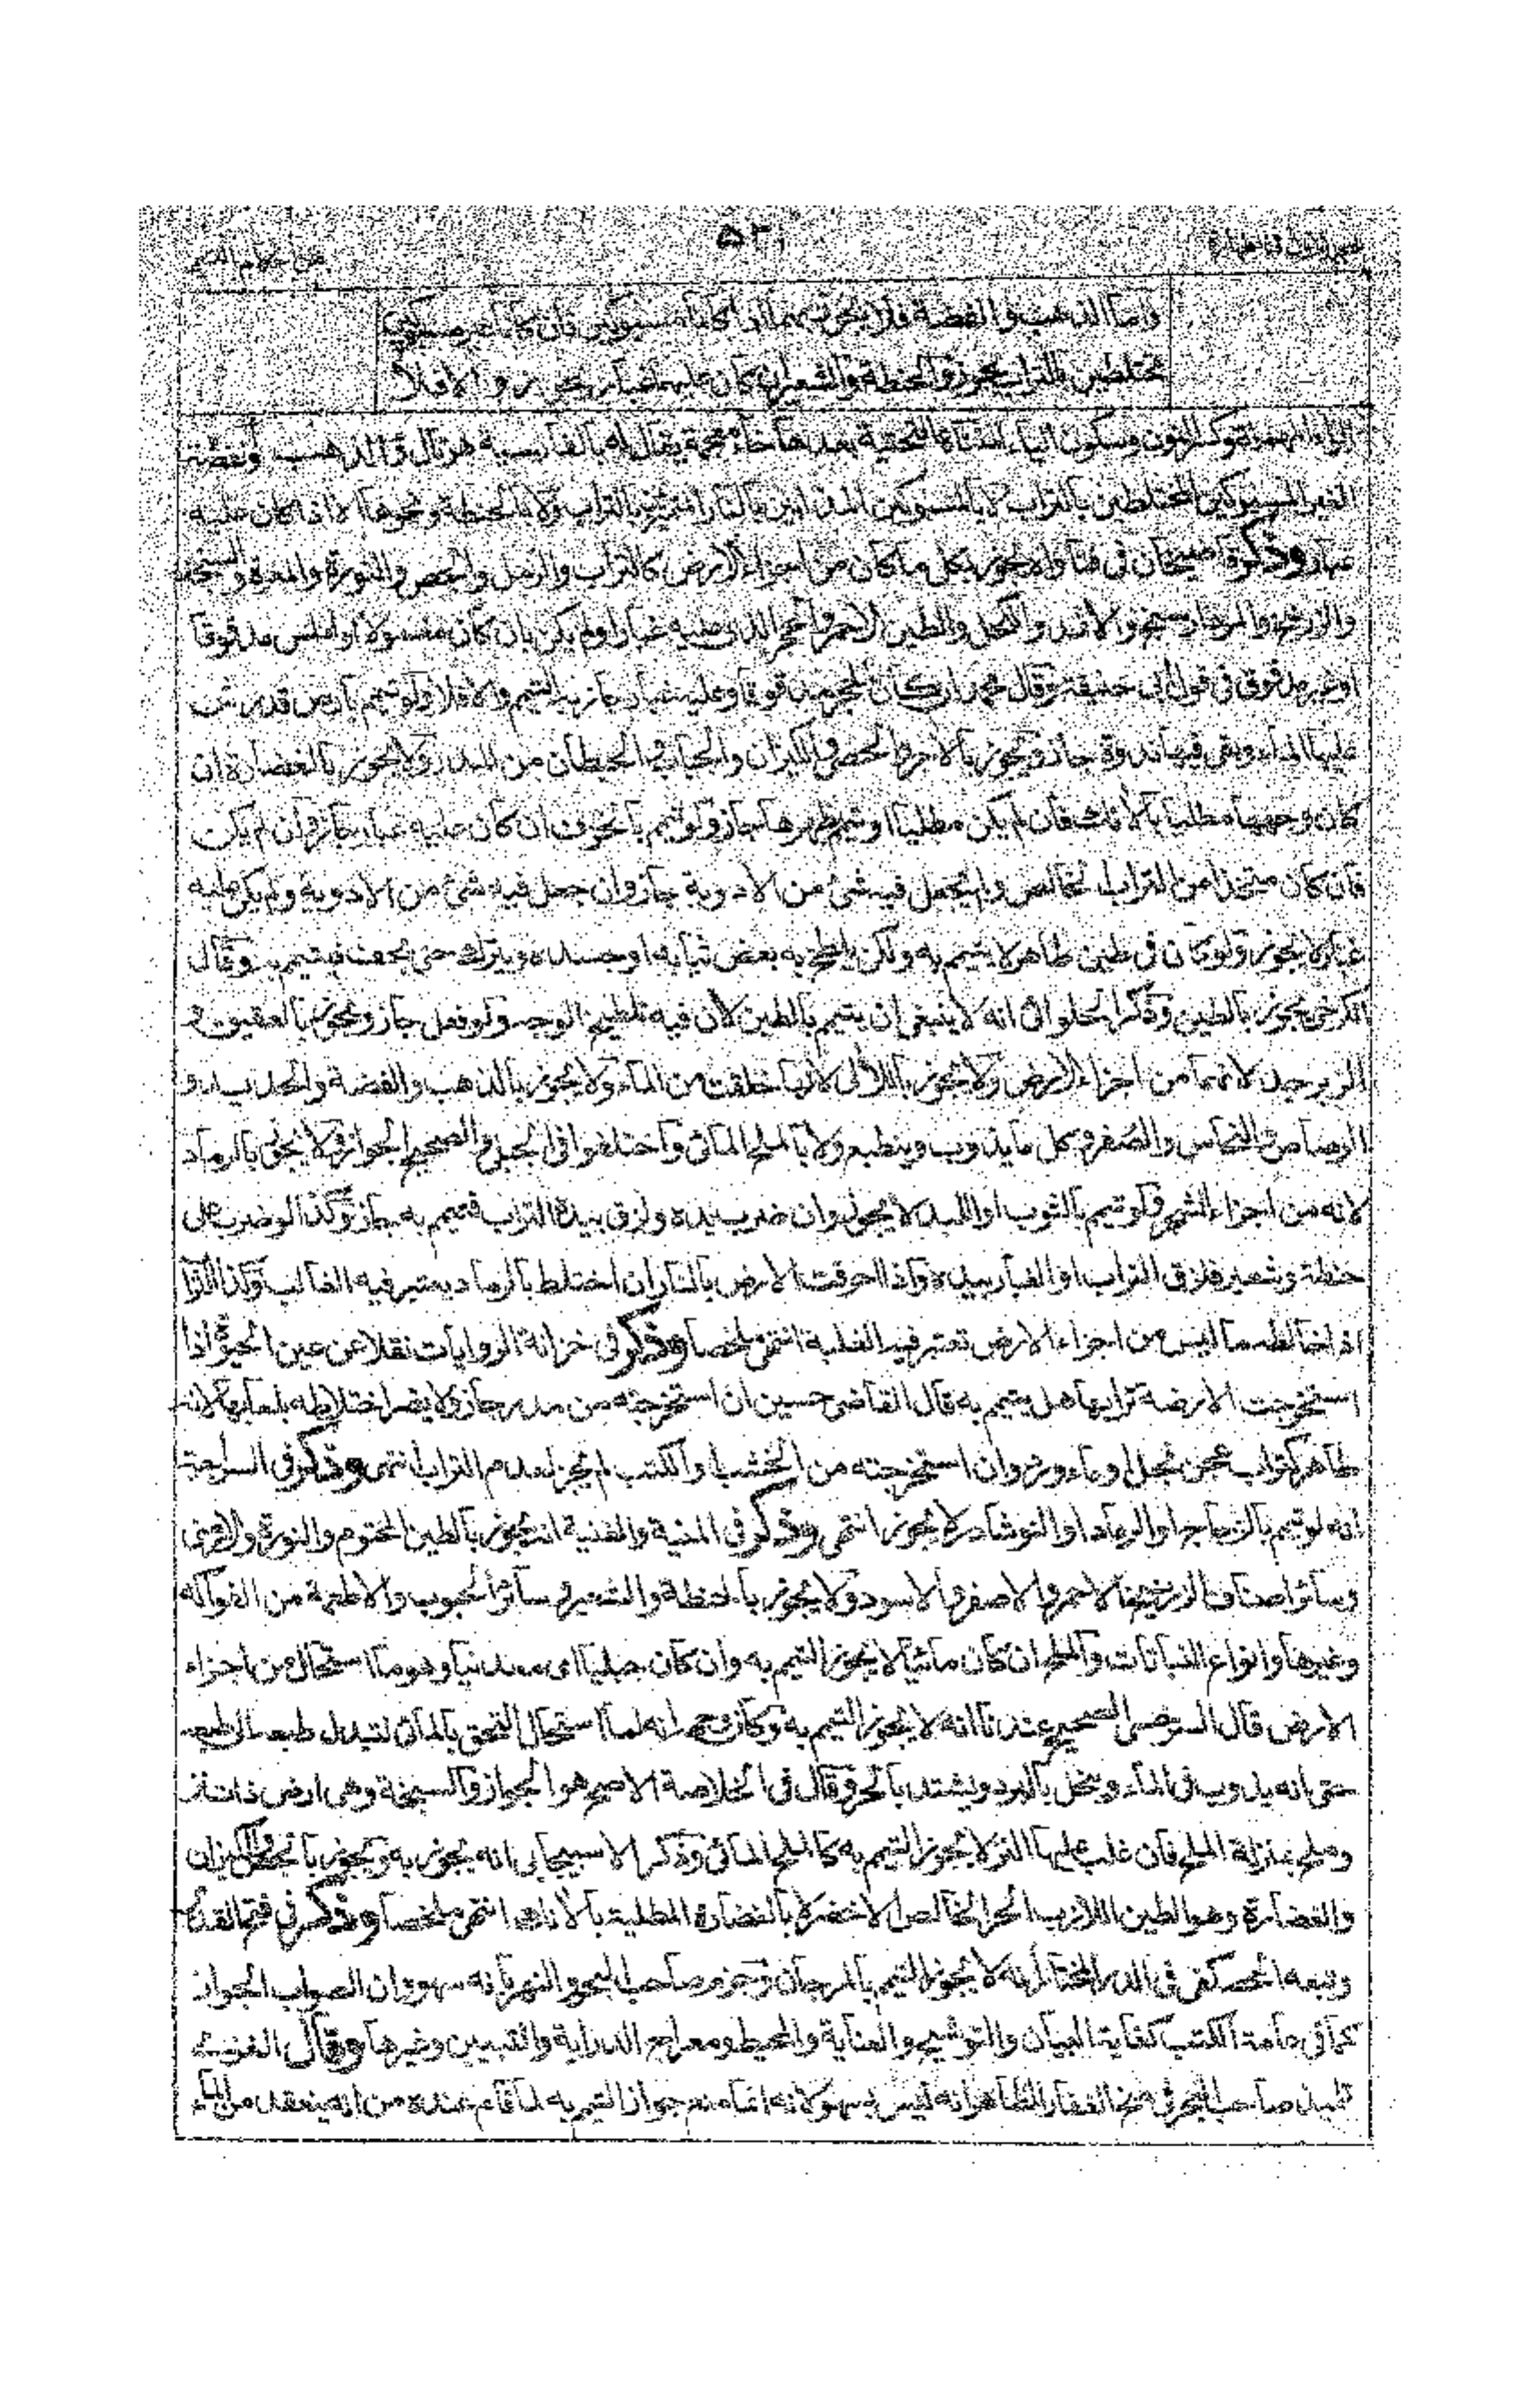 واما الذهب والفضة فلا يجوز بهما اذا كانا مسبوكين فان كانا غير مسبوكين
مختلطين بالتراب يجوز والحنطة والشعير ان كان عليهما غبار يجوز والا فلا
الراء المهملة وكسر النون وسكون الياء المثناة التحتية بعدها خاء معجمة يقال له بالفارسية هرتال والذهب والفضة
الغير المسبوكين المختلطين بالتراب لا بالمسبوكين المذابين بالنار المتميزين بالتراب ولا بالحنطة ونحوها الا اذا كان عليه
غبار وذكر قاضيخان في فتاواه يجوز بكل ما كان من اجزاء الارض كالتراب والرمل والجص والنورة والمغرة والسبخة
والزرنيخ والمرداسنج والاثمد والكحل والطين الاحمر والحجر الذى عليه غبار او لم يكن بان كان مغسولا او املس مدقوقا
او غير مدقوق فى قول ابى حنيفة وقال محمد ان كان الحجر مدقوقا وعليه غبار جاز به التيمم والا فلا ولو تيمم بارض قد رش
عليها الماء وبقى فيها ندوة جاز ويجوز بالآجر والحصى والكيزان والجباب والحيطان من المدر ولا يجوز بالغضارة ان
كان وجهها مطليا بالآنك فان لم يكن مطليا او تيمم بظهرها جاز ولو تيمم بالخزف ان كان عليه غبار جاز وان لم يكن
فان كان متخذا من التراب الخالص ولم يجعل فيه شئ من الادوية جاز وان جعل فيه شئ من الادوية ولم يكن عليه
غبار لا يجوز ولو كان فى طين طاهر لا يتيمم به ولكن يلطخ به بعض ثيابه او جسده ويترك حتى يجف فيتيمم به وقال
الكرخى يجوز بالطين وذكر الحلوائى انه لا ينبغى ان يتيمم بالطين لان فيه تلطيخ الوجه ولو فعل جاز ويجوز بالعقيق و
الزبرجد لانهما من اجزاء الارض ولا يجوز باللآلى لانها خلقت من الماء ولا يجوز بالذهب والفضة والحديد و
الرصاص والنحاس والصفر وكل ما يذوب وينطبع ولا بالملح المائى واختلفوا فى الجبلى والصحيح الجواز ولا يجوز بالرماد
لانه من اجزاء الشجر ولو تيمم بالثوب او اللبد لا يجوز وان ضرب يده ولزق بيده التراب فتيمم به جاز وكذا لو ضرب على
حنطة وشعير فلزق التراب او الغبار بيده واذا احرقت الارض بالنار ان اختلط بالرماد يعتبر فيه الغالب وكذا التراب
اذا خالطه ما ليس من اجزاء الارض تعتبر فيه الغلبة انتهى ملخصا وذكر فى خزانة الروايات نقلا عن عين الحيوة اذا
استخرجت الارضة ترابها هل يتيمم به قال القاضى حسين ان استخرجته من مدر جاز ولا يضر اختلاطه بلعابها لانه
طاهر كتراب عجن بخل او ماء ورد وان استخرجته من الخشب او الكتب لم يجز لعدم التراب انتهى وذكر فى السراجية
انه لو تيمم بالزجاج او الرماد او النوشادر لا يجوز انتهى وذكر فى المنية والغنية انه يجوز بالطين المختوم والنورة والارمنى
وسائر اصناف الزرنيخ الاحمر والاصفر والاسود ولا يجوز بالحنطة والشعير وسائر الحبوب والاطعمة من الفواكه
وغيرها وانواع النباتات والملح ان كان مائيا لا يجوز التيمم به وان كان جبليا اى معدنيا وهو ما استحال من اجزاء
الارض قال السرخسى الصحيح عندنا انه لا يجوز التيمم به وكان وجهه انه لما استحال التحق بالمائى لتبدل طبعه الى طبعه
حتى انه يذوب فى الماء وينحل بالبرد ويشتد بالحر وقال فى الخلاصة الاصح هو الجواز والسبخة وهى ارض ذات نز
وملح بمنزلة الملح فان غلب عليها النز لا يجوز التيمم به كالملح المائى وذكر الاسبيجابى انه يجوز به ويجوز بالحصى والكيزان
والغضارة وهو الطين اللازب الحر الخالص الاخضر لا بالغضارة المطلية بالآنك انتهى ملخصا وذكر فى فتح القدير
وتبعه الحصكفى فى الدر المختار انه لا يجوز التيمم بالمرجان وجزم صاحب البحر والنهر بانه سهو وان الصواب الجواز
كما فى عامة الكتب كغاية البيان والتوشيح والعناية والمحيط ومعراج الدراية والتبيين وغيرها وقال الغزى
تلميذ صاحب البحر فى منح الغفار الظاهر انه ليس بسهو لانه انما منع جواز التيمم به لما قام عنده من انه ينعقد من الماء